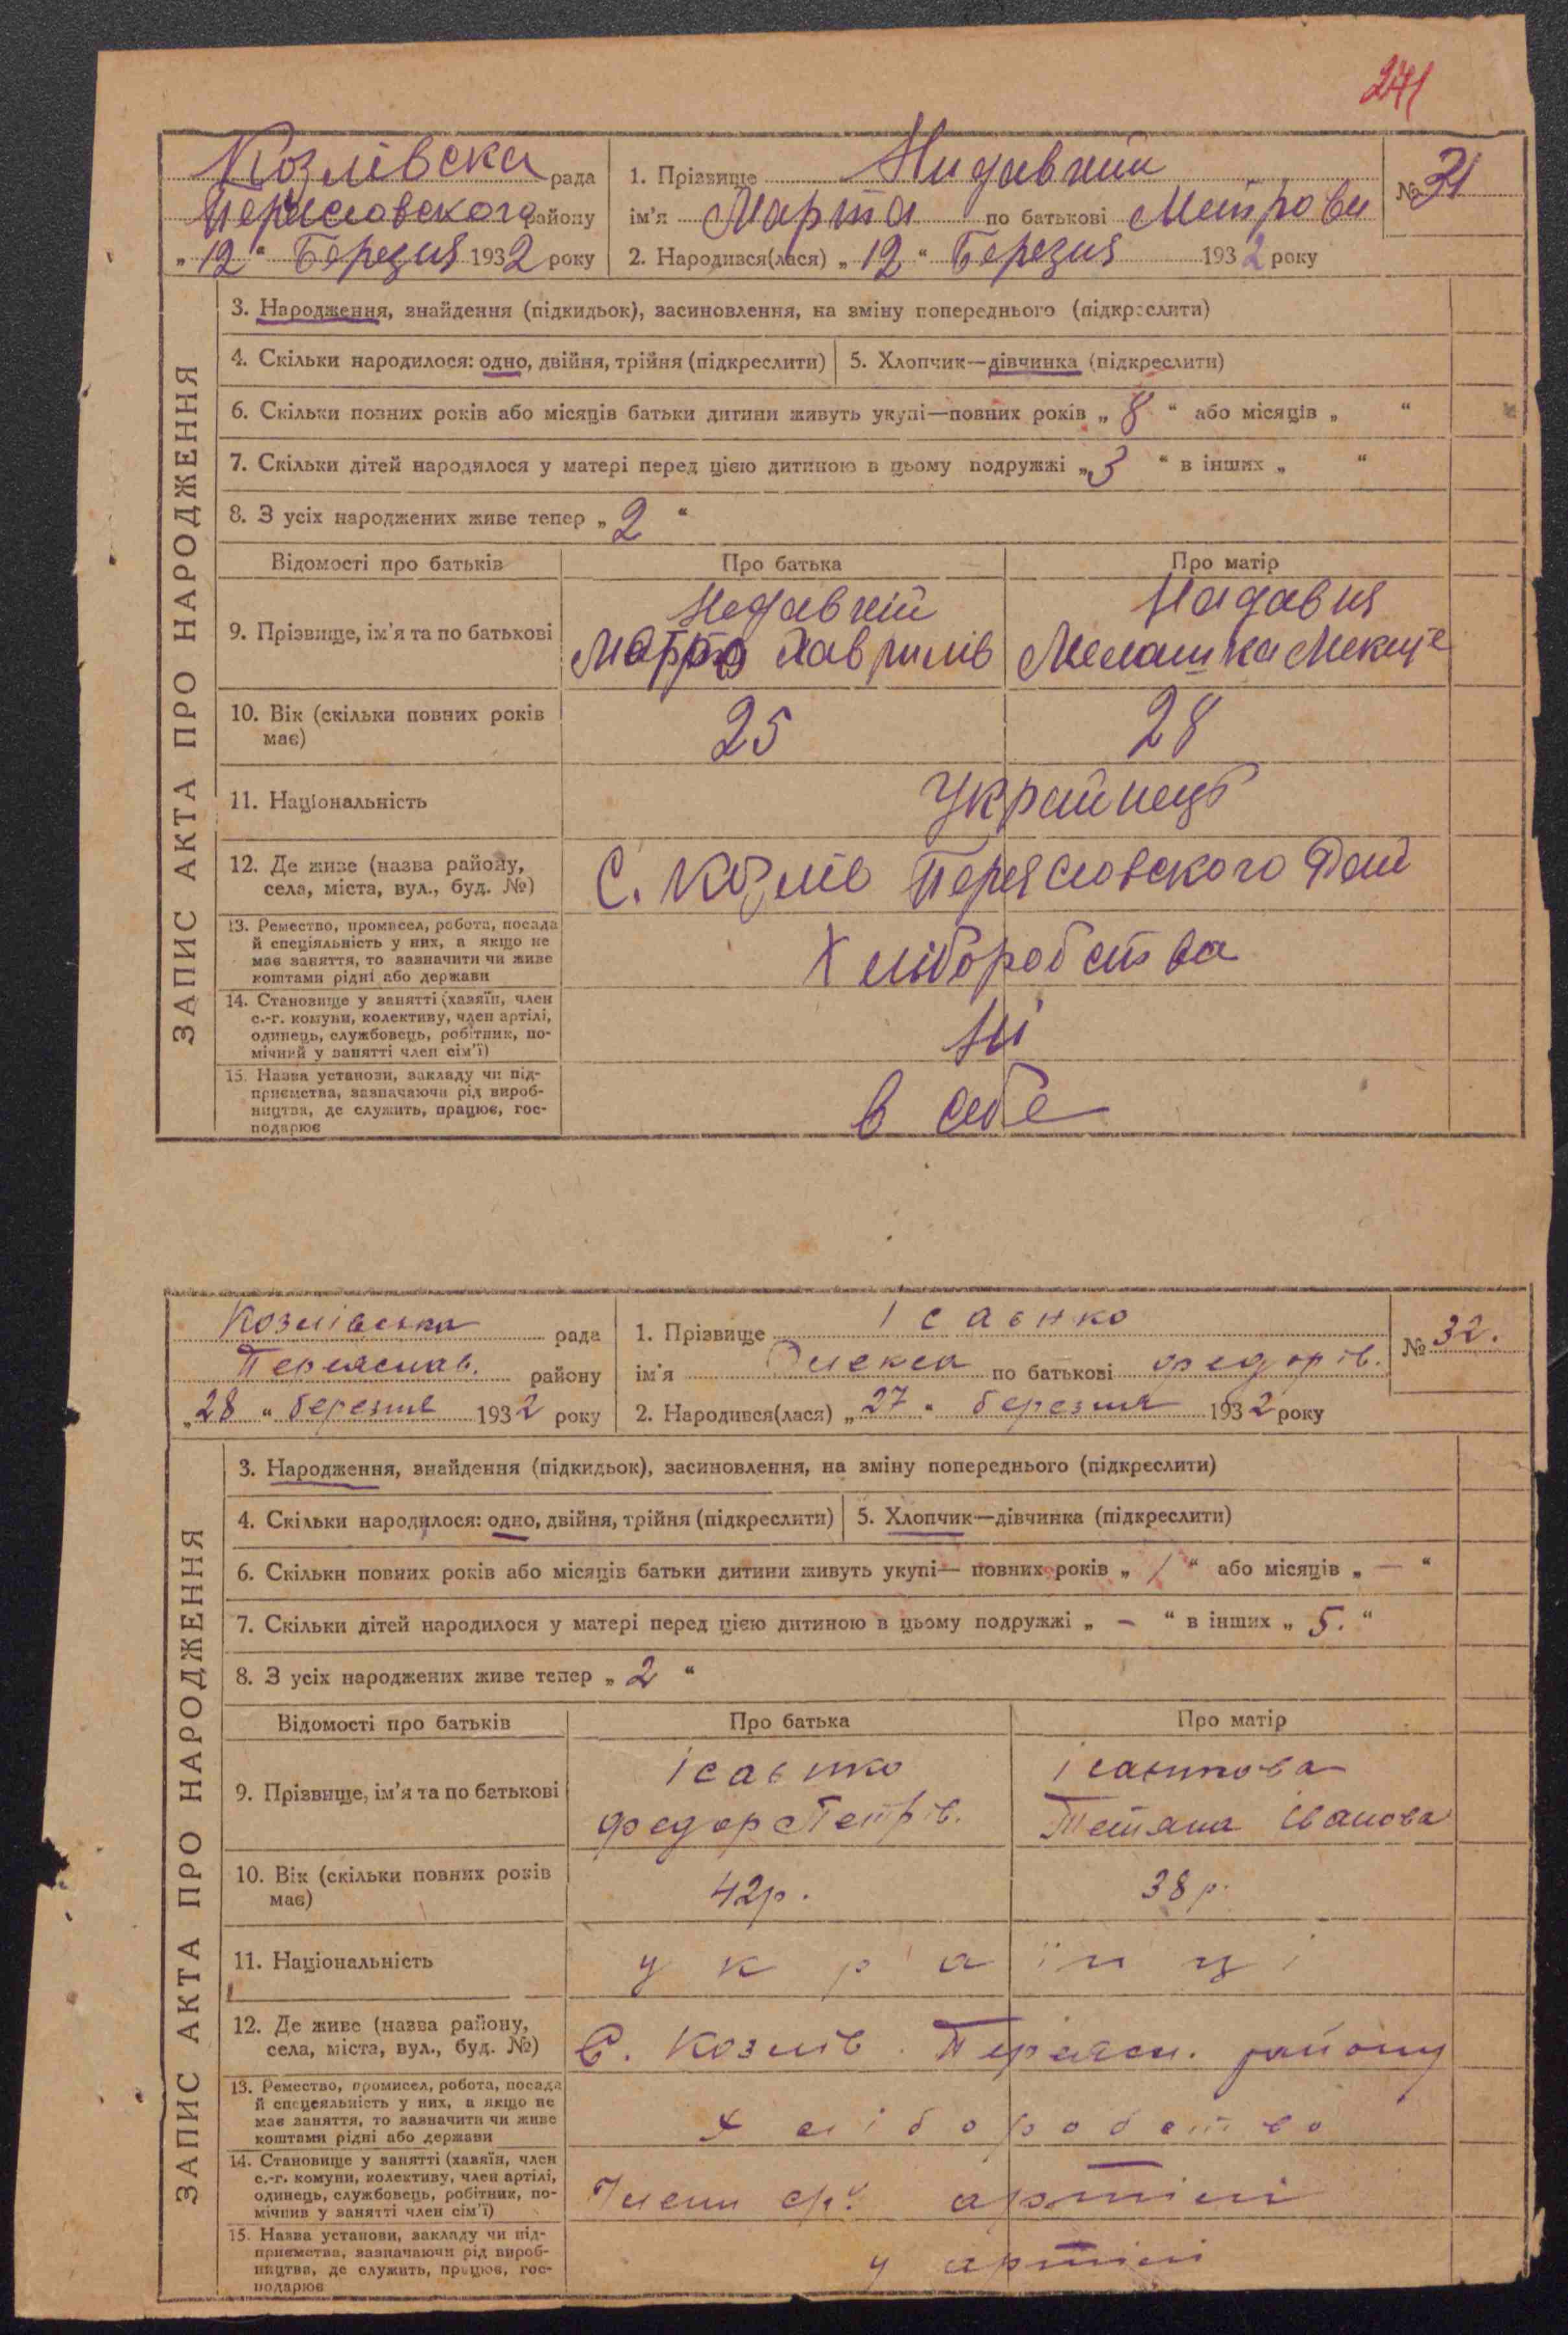 241
Козлівска рада
Переясловского району
„12“ Березня 1932 року
1. Прізвище Нидавний
ім'я Марта по батькові Митрови
№ 31
2. Народився(лася) „12“ Березня 1932 року
ЗАПИС АКТА ПРО НАРОДЖЕННЯ
3. Народження, знайдення (підкидьок), засиновлення, на зміну попереднього (підкреслити)
4. Скільки народилося: одно, двійня, трійня (підкреслити) 5. Хлопчик—дівчинка (підкреслити)
6. Скільки повних років або місяців батьки дитини живуть укупі—повних років „8“ або місяців „ “
7. Скільки дітей народилося у матері перед цією дитиною в цьому подружжі „3“ в інших „ “
8. З усіх народжених живе тепер „2“
Відомості про батьків Про батька Про матір
9. Прізвище, ім'я та по батькові
Недавній
Хаврилів
Надавня
Мелашка
10. Вік (скільки повних років
має)
25 28
11. Національність Украйнець
12. Де живе (назва району,
села, міста, вул., буд. №)
С. Козлів Переясловского
13. Ремество, промисел, робота, посада
й спеціяльність у них, а якщо не
має заняття, то зазначити чи живе
коштами рідні або держави
Хліборобства
14. Становище у занятті (хазяїн, член
с.-г. комуни, колективу, член артілі,
одинець, службовець, робітник, по-
мічний у занятті член сім'ї)
Ні
15. Назва установи, закладу чи під-
приємства, зазначаючи рід вироб-
ництва, де служить, працює, гос-
подарює
в себе
Козлівська рада
Переяслав. району
„28“ березня 1932 року
1. Прізвище Ісаєнко
ім'я Олекса по батькові Федорів.
№ 32.
2. Народився(лася) „27“ березня 1932 року
ЗАПИС АКТА ПРО НАРОДЖЕННЯ
3. Народження, знайдення (підкидьок), засиновлення, на зміну попереднього (підкреслити)
4. Скільки народилося: одно, двійня, трійня (підкреслити) 5. Хлопчик—дівчинка (підкреслити)
6. Скільки повних років або місяців батьки дитини живуть укупі— повних років „1“ або місяців „—“
7. Скільки дітей народилося у матері перед цією дитиною в цьому подружжі „–“ в інших „5.“
8. З усіх народжених живе тепер „2“
Відомості про батьків Про батька Про матір
9. Прізвище, ім'я та по батькові
Ісаєнко
Федор Петрів.
Ісаєнкова
Тетяна Іванова
10. Вік (скільки повних років
має)
42р. 38 р.
11. Національність українці
12. Де живе (назва району,
села, міста, вул., буд. №)
С. Козлів. Переясл. району
13. Ремество, промисел, робота, посада
й спецеяльність у них, а якщо не
має заняття, то зазначити чи живе
коштами рідні або держави
Хліборобство
14. Становище у занятті (хазяїн, член
с.-г. комуни, колективу, член артілі,
одинець, службовець, робітник, по-
мічнив у занятті член сім'ї)
артілі
15. Назва установи, закладу чи під-
приємства, зазначаючи рід вироб-
ництва, де служить, працює, гос-
подарює
у артілі